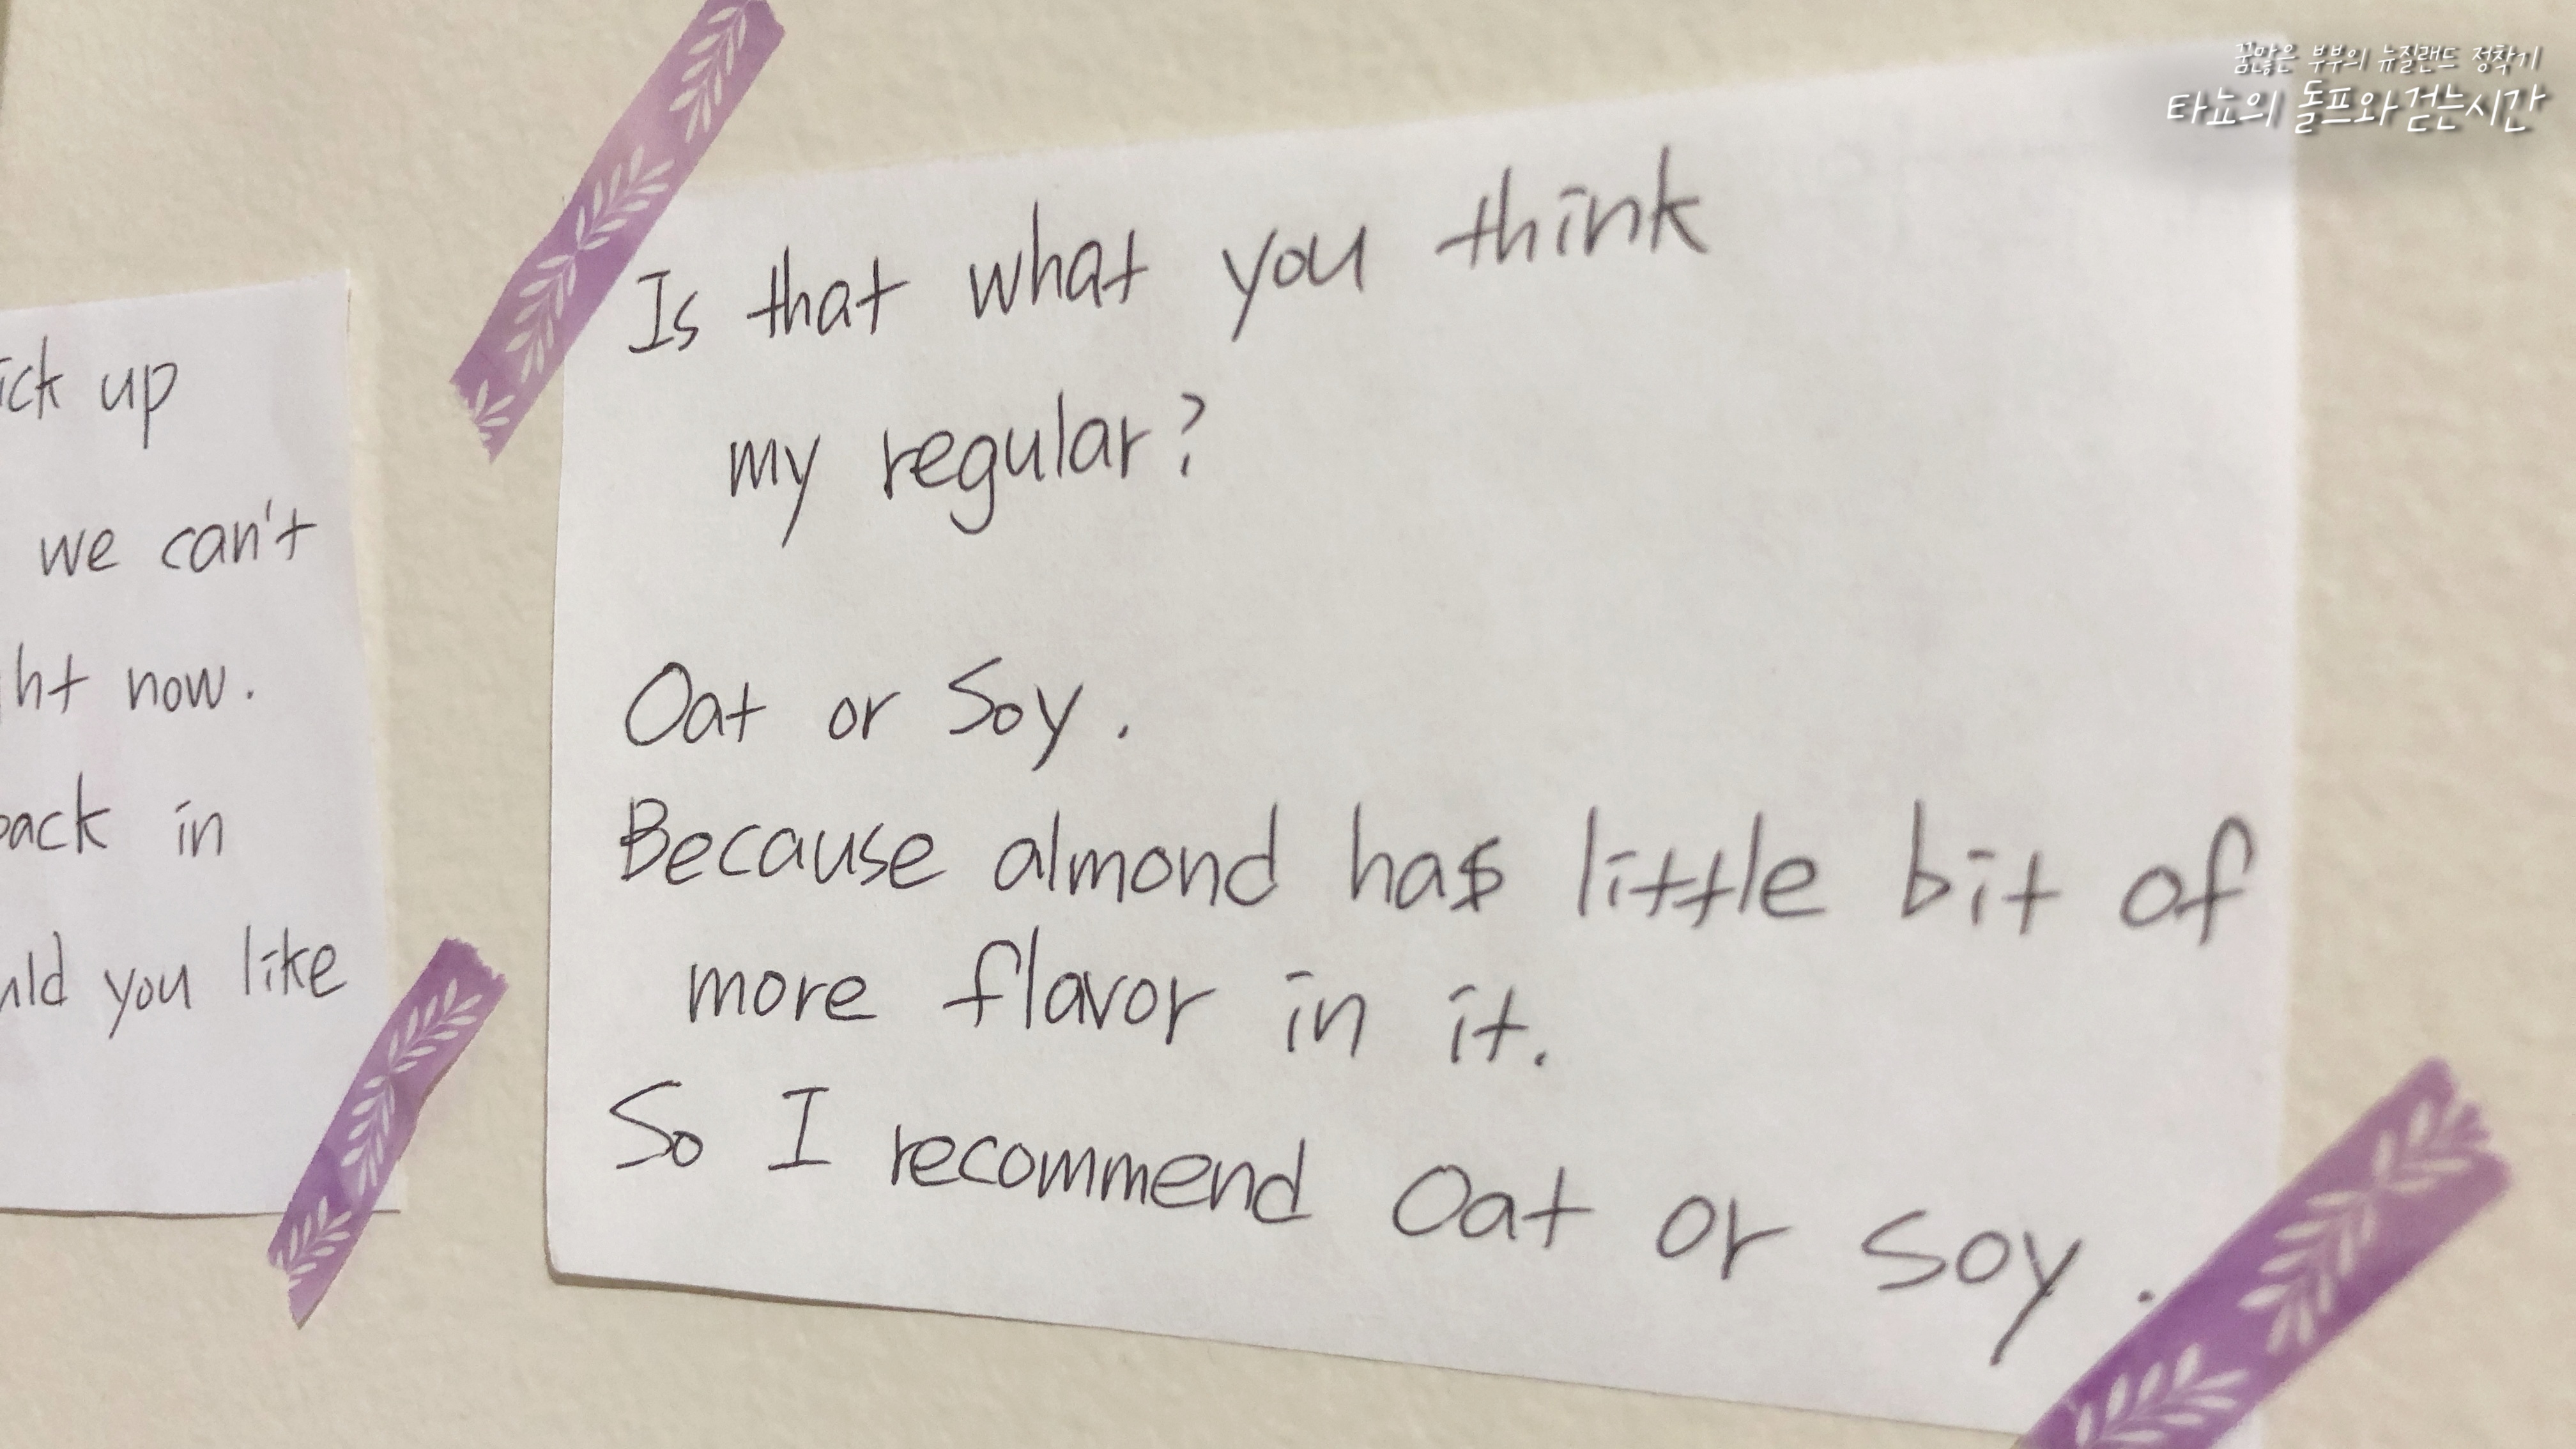 꿈많은 부부의 뉴질랜드 정착기
타뇨의 돌프와걷는시간
up
we can't
now.
in
you like
Is that what you think
my regular?
Oat or Soy.
Because almond has little bit of
more flavor in it.
So I recommend Oat or soy.